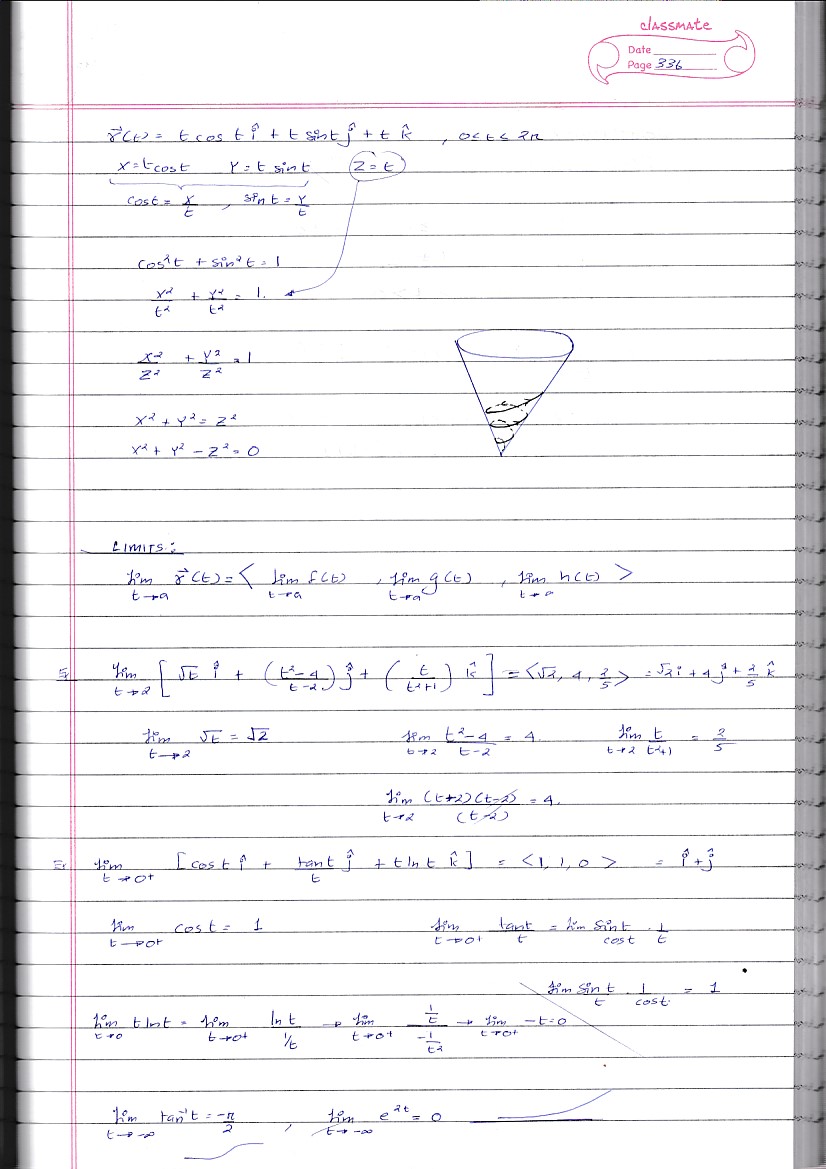 classmate
Date
Page 336
r⃗(t) = t cos t î + t sin t ĵ + t k̂ , 0≤t≤2π
X=t cost Y=t sint Z=t
cost = X/t , sint = Y/t
cos²t + sin²t = 1
X²/t² + Y²/t² = 1.
X²/Z² + Y²/Z² = 1
X² + Y² = Z²
X² + Y² - Z² = 0
LIMITS:
lim t→a r⃗(t) = < lim t→a f(t) , lim t→a g(t) , lim t→a h(t) >
Ex lim t→2 [ √t î + (t²-4/t-2) ĵ + (t/t²+1) k̂ ] = <√2, 4, 2/5> = √2 î + 4 ĵ + 2/5 k̂
lim t→2 √t = √2 lim t→2 t²-4/t-2 = 4. lim t→2 t/t²+1 = 2/5
lim t→2 (t+2)(t-2)/(t-2) = 4.
Ex lim t→0+ [cos t î + tant/t ĵ + t ln t k̂] = <1, 1, 0> = î + ĵ
lim t→0+ cos t = 1 lim t→0+ tant/t = lim sint/cost . 1/t
lim sint/t . 1/cost. = 1
lim t→0 t ln t = lim t→0+ ln t/1/t → lim t→0+ 1/t/-1/t² → lim t→0+ -t=0
lim t→-∞ tan⁻¹t = -π/2 , lim t→-∞ e^2t = 0